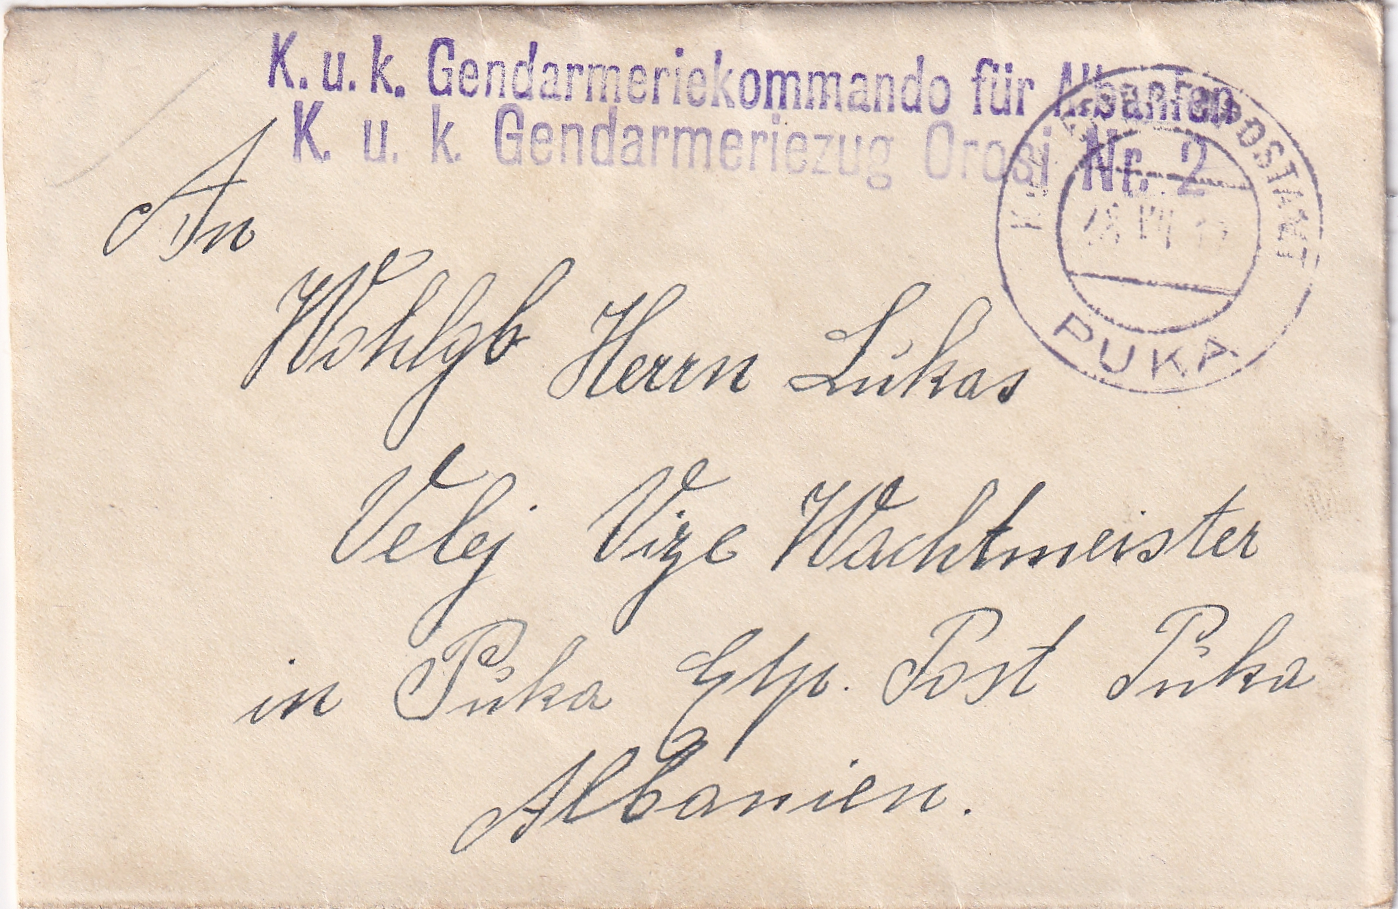 K. u. k. Gendarmeriekommando für Albanien
K. u. k. Gendarmeriezug Orosi Nr. 2
K.u.K. ETAPPENPOSTAMT
PUKA
An
Wohlgb Herrn Lukas
Velej Vize Wachtmeister
in Puka Etp. Post Puka
Albanien.